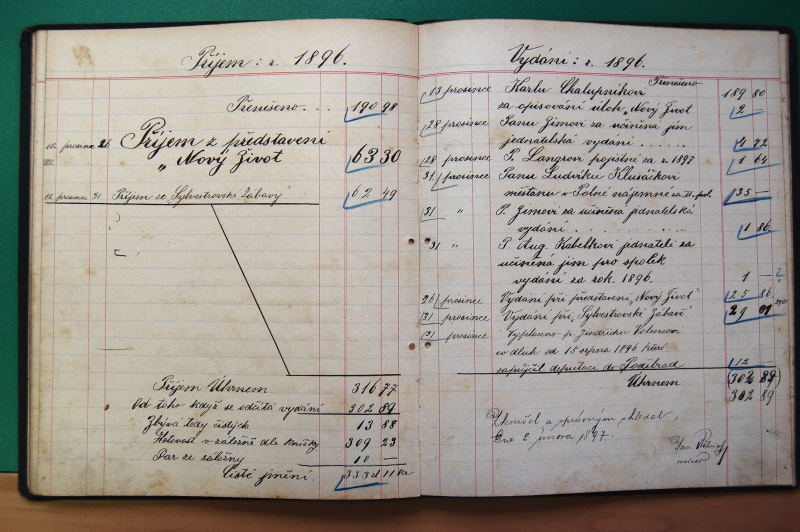 Příjem: r. 1896.
Přenešeno... 190 98
26 Příjem z představení
„Nový Život 63 30
11. prosince 31 Příjem ze Sylvestrovské Zábavy 62 49
Příjem Úhrnem 316 77
Od toho když se odčítá vydání 302 89
Zbývá tedy čistých 13 88
Hotovost v záložně dle knížky 309 23
Dar ze záložny 10 —
Čisté jmění. 333 zl 11 kr
Vydání: r. 1896.
Přenešeno
13 prosince Karlu Chalupníkovi 189 80
za opisování úloh „Nový Život 2 —
28 prosince Panu Zimovi za učiněná jim
jednatelská vydání ...... 4 72
28 prosince P. Langrovi pojistné za r. 1897 1 64
31 prosince Panu Ludvíku Klusáčkovi
měšťanu v Polné nájemné za II. pol. 35 —
31 " P. Zimovi za učiněná jednatelská
vydání ........ 1 86
31 " P. Aug. Kabelkovi jednateli za
učiněná jim pro spolek
vydání za rok. 1896. 1 — ?
26 prosince Vydání při představení „Nový Život" 25 86
31 prosince Vydání při „Sylvestrovské Zábavě 29 01
31 prosince Vyplaceno p. Jindřichu
co dluh od 15 srpna 1896 které
zapůjčil deputaci do Poděbrad 12 —
Úhrnem (302 89)
302 89
Zkoušel a správným shledal,
Dne 2 února 1897.
Jan